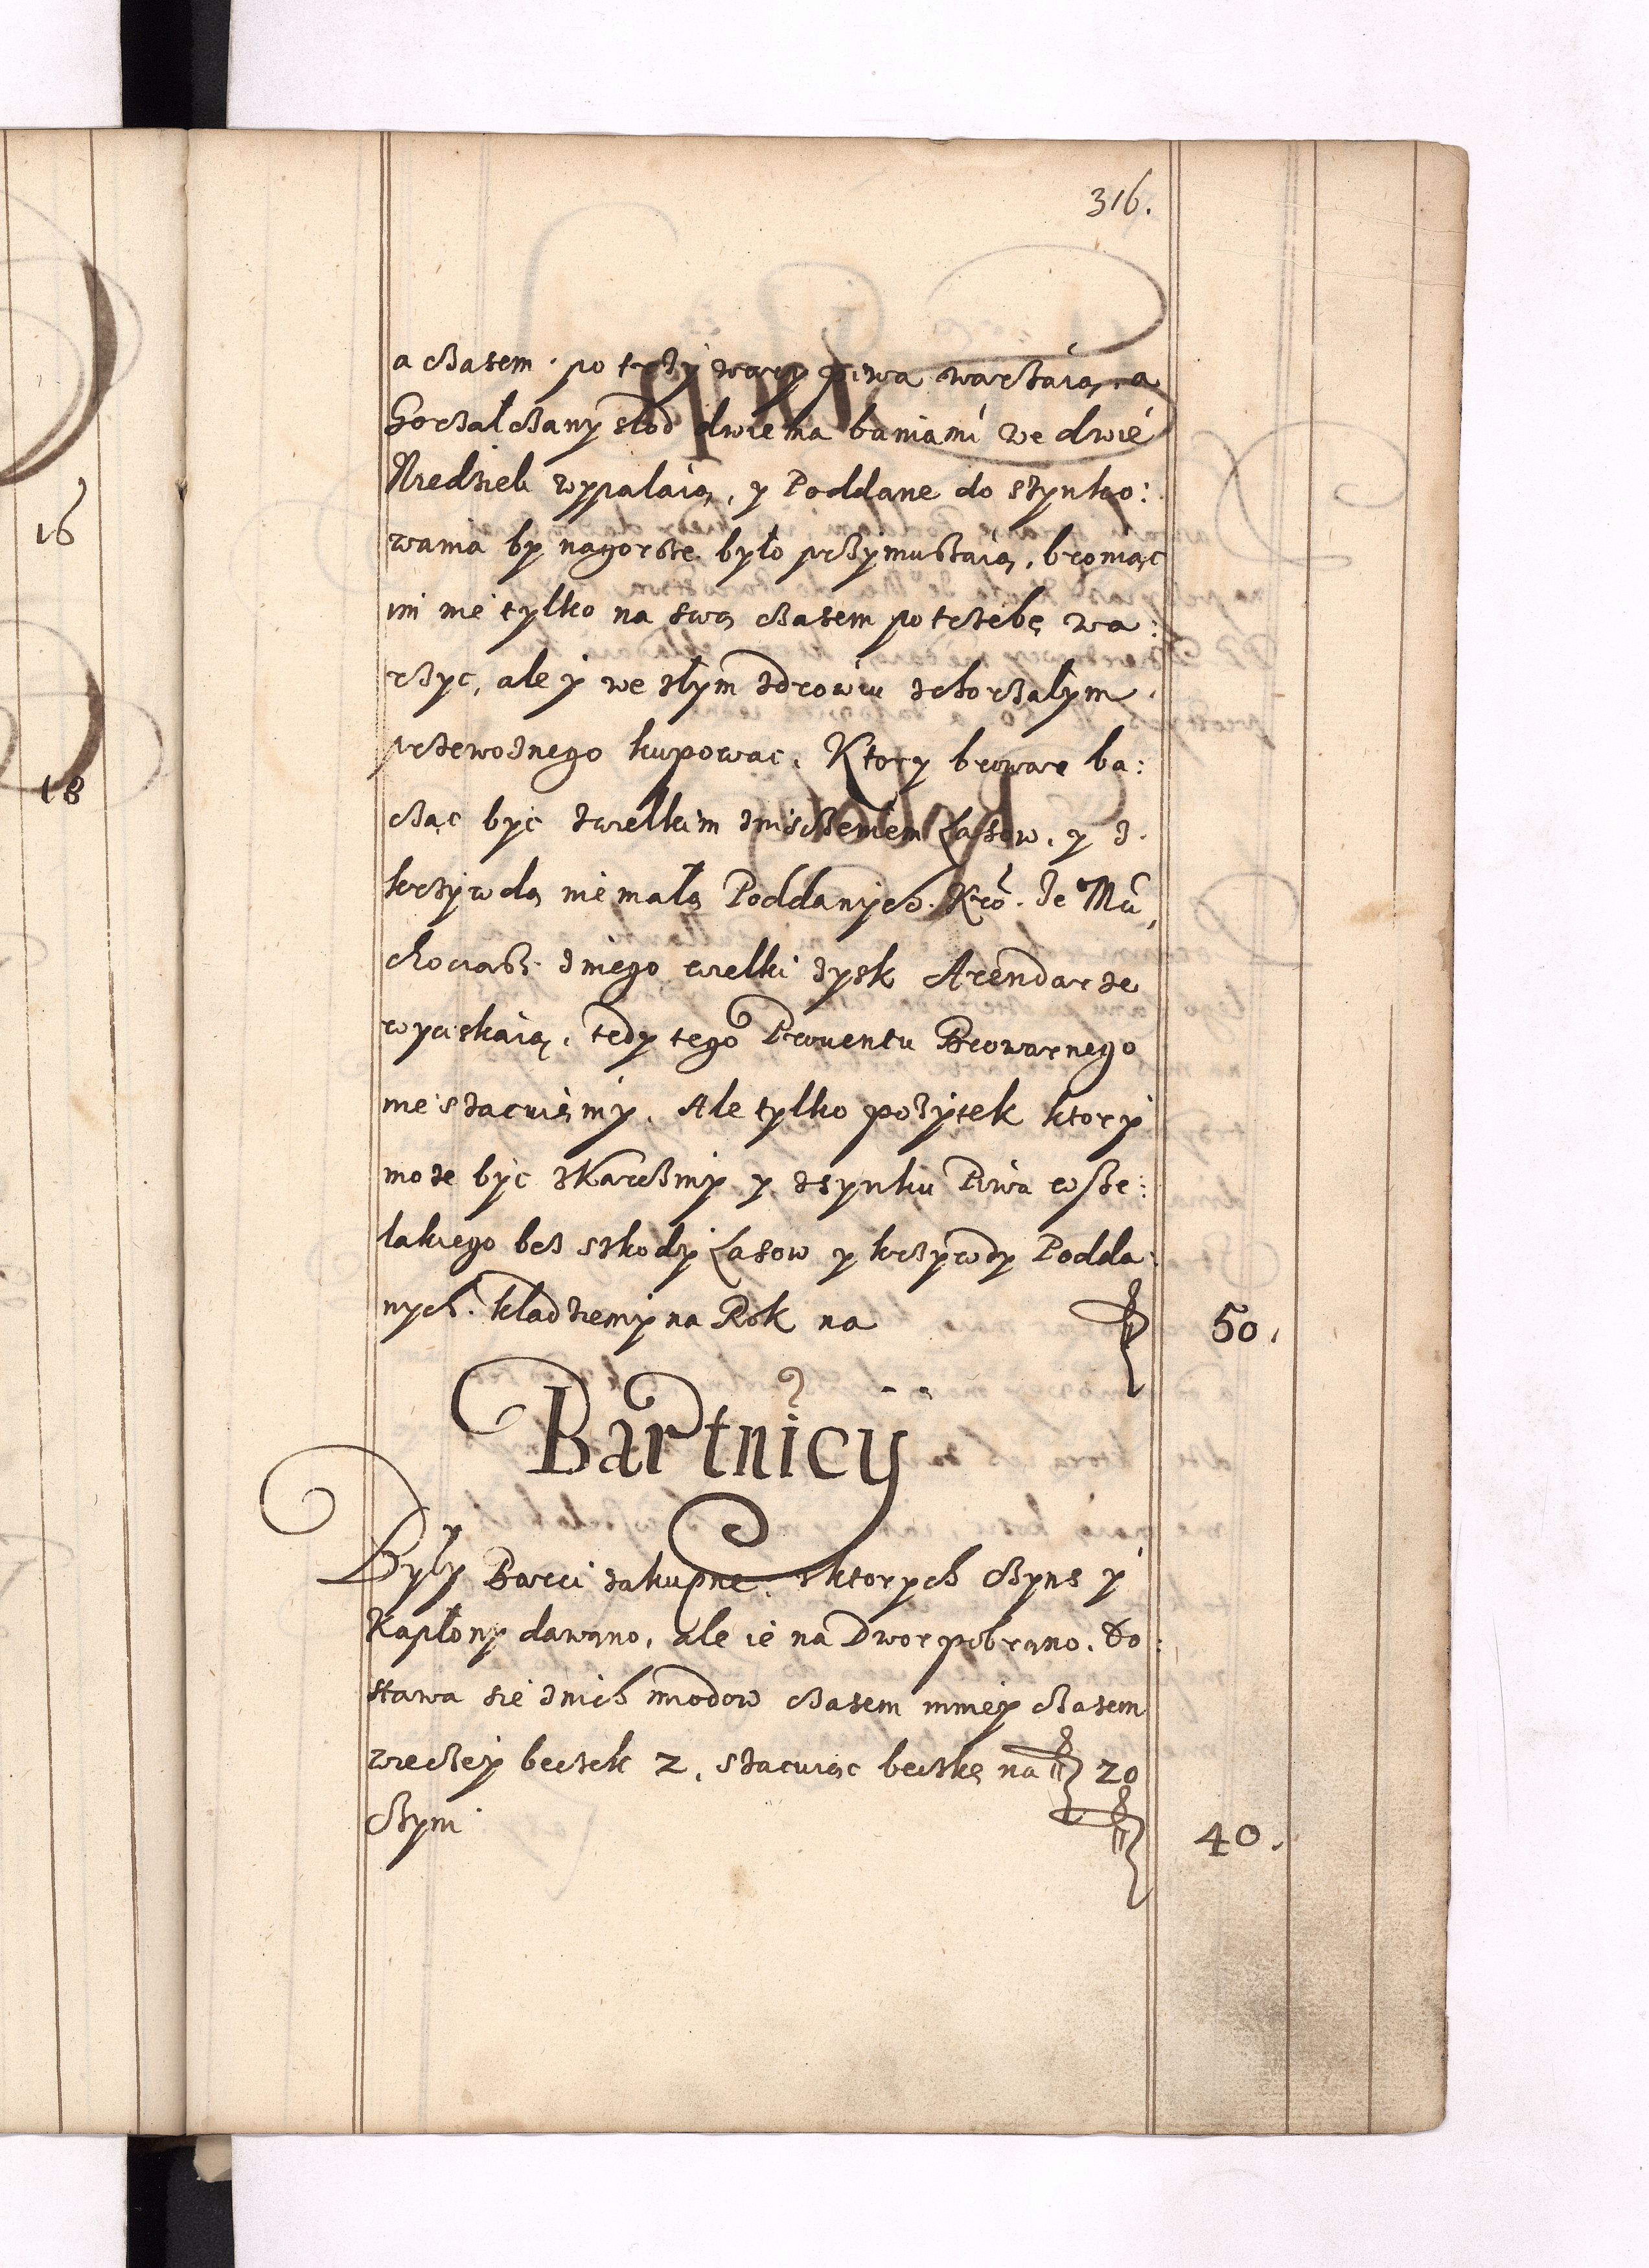 316.
16
18
a czasem po trzy wary piwa warzaią, a
Gorzałczany słod dwiema baniami we dwie
Niedzieli wypalaią, y Poddane do szynko:
wania by nagorsze było przymuszaią, broniąc
im nie tylko na swą czasem potrzebę wa:
rzyc, ale y we złym zdrowiu schorzałym
przewoznego kupowac. Ktory browar ba:
cząc byc z wielkim zniszczeniem Lasow, y z
krzywdą niemałą Poddanych Kro. Je Mći,
chociasz z niego wielki zysk Arendarze
wyciskaią, tedy tego Prouentu Browarnego
nie szacuięmy. Ale tylko pozytek ktory
moze byc z karczmy y z szynku Piwa wsze:
lakiego bez szkody Lasow y krzywdy Podda:
nych. kładziemy na Rok na
50.
Bartnicy
Były Barci zakupne, z ktorych Czyns y
Kapłony dawano, ale ie na Dwor pobrano. Do:
stawa sie z nich miodow czasem mniey czasem
więczey beczek 2, szacuiąc beczkę na 20
Czyni
40.